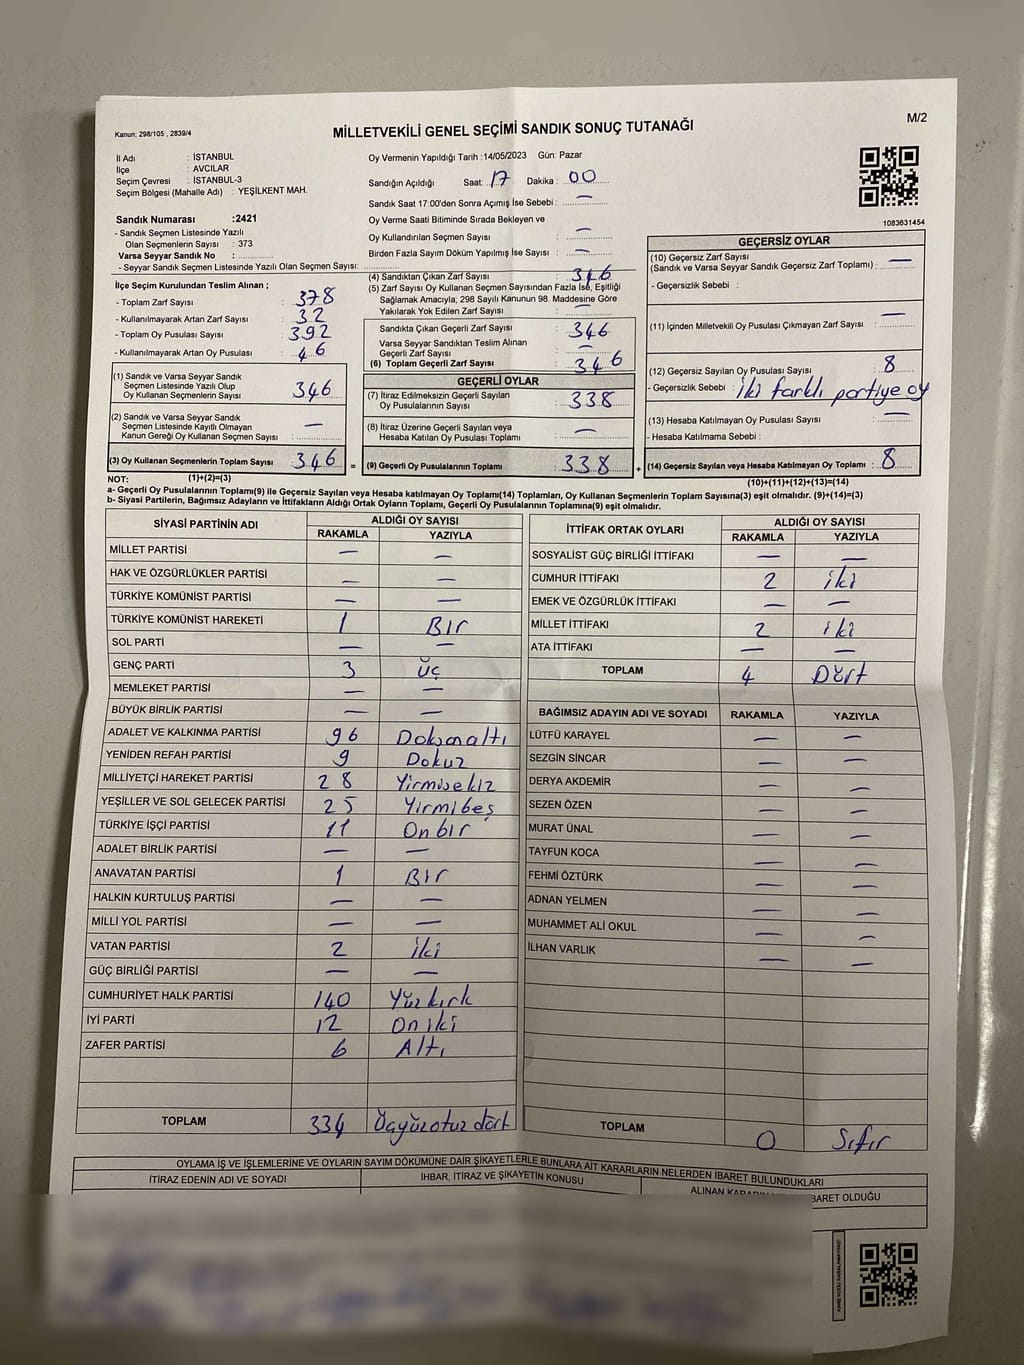 Kanun; 298/105 , 2839/4
MİLLETVEKİLİ GENEL SEÇİMİ SANDIK SONUÇ TUTANAĞI
M/2
İl Adı : İSTANBUL
İlçe : AVCILAR
Seçim Çevresi : İSTANBUL-3
Seçim Bölgesi (Mahalle Adı) : YEŞİLKENT MAH.
Sandık Numarası :2421
- Sandık Seçmen Listesinde Yazılı
Olan Seçmenlerin Sayısı : 373
Varsa Seyyar Sandık No :
- Seyyar Sandık Seçmen Listesinde Yazılı Olan Seçmen Sayısı:
İlçe Seçim Kurulundan Teslim Alınan ;
- Toplam Zarf Sayısı : 378
- Kullanılmayarak Artan Zarf Sayısı : 32
- Toplam Oy Pusulası Sayısı : 392
- Kullanılmayarak Artan Oy Pusulası : 46
(1) Sandık ve Varsa Seyyar Sandık
Seçmen Listesinde Yazılı Olup
Oy Kullanan Seçmenlerin Sayısı : 346
(2) Sandık ve Varsa Seyyar Sandık
Seçmen Listesinde Kayıtlı Olmayan
Kanun Gereği Oy Kullanan Seçmen Sayısı : —
(3) Oy Kullanan Seçmenlerin Toplam Sayısı : 346
Oy Vermenin Yapıldığı Tarih :14/05/2023 Gün: Pazar
Sandığın Açıldığı Saat: 17 Dakika : 00
Sandık Saat 17:00'den Sonra Açımış İse Sebebi : —
Oy Verme Saati Bitiminde Sırada Bekleyen ve
Oy Kullandırılan Seçmen Sayısı : —
Birden Fazla Sayım Döküm Yapılmış İse Sayısı : —
(4) Sandıktan Çıkan Zarf Sayısı : 346
(5) Zarf Sayısı Oy Kullanan Seçmen Sayısından Fazla İse, Eşitliği
Sağlamak Amacıyla; 298 Sayılı Kanunun 98. Maddesine Göre
Yakılarak Yok Edilen Zarf Sayısı : —
Sandıkta Çıkan Geçerli Zarf Sayısı : 346
Varsa Seyyar Sandıktan Teslim Alınan
Geçerli Zarf Sayısı : —
(6) Toplam Geçerli Zarf Sayısı : 346
GEÇERLİ OYLAR
(7) İtiraz Edilmeksizin Geçerli Sayılan
Oy Pusulalarının Sayısı : 338
(8) İtiraz Üzerine Geçerli Sayılan veya
Hesaba Katılan Oy Pusulası Toplamı : —
= (9) Geçerli Oy Pusulalarının Toplamı : 338 +
1083631454
GEÇERSİZ OYLAR
(10) Geçersiz Zarf Sayısı
(Sandık ve Varsa Seyyar Sandık Geçersiz Zarf Toplamı) : —
- Geçersizlik Sebebi :
(11) İçinden Milletvekili Oy Pusulası Çıkmayan Zarf Sayısı : —
(12) Geçersiz Sayılan Oy Pusulası Sayısı : 8
- Geçersizlik Sebebi : iki farklı partiye oy
(13) Hesaba Katılmayan Oy Pusulası Sayısı : —
- Hesaba Katılmama Sebebi :
(14) Geçersiz Sayılan veya Hesaba Katılmayan Oy Toplamı : 8
NOT: (1)+(2)=(3) (10)+(11)+(12)+(13)=(14)
a- Geçerli Oy Pusulalarının Toplamı(9) ile Geçersiz Sayılan veya Hesaba katılmayan Oy Toplamı(14) Toplamları, Oy Kullanan Seçmenlerin Toplam Sayısına(3) eşit olmalıdır. (9)+(14)=(3)
b- Siyasi Partilerin, Bağımsız Adayların ve İttifakların Aldığı Ortak Oyların Toplamı, Geçerli Oy Pusulalarının Toplamına(9) eşit olmalıdır.
SİYASİ PARTİNİN ADI ALDIĞI OY SAYISI
RAKAMLA YAZIYLA
MİLLET PARTİSİ — —
HAK VE ÖZGÜRLÜKLER PARTİSİ — —
TÜRKİYE KOMÜNİST PARTİSİ — —
TÜRKİYE KOMÜNİST HAREKETİ 1 Bir
SOL PARTİ — —
GENÇ PARTİ 3 Üç
MEMLEKET PARTİSİ — —
BÜYÜK BİRLİK PARTİSİ — —
ADALET VE KALKINMA PARTİSİ 96 Doksanaltı
YENİDEN REFAH PARTİSİ 9 Dokuz
MİLLİYETÇİ HAREKET PARTİSİ 28 Yirmisekiz
YEŞİLLER VE SOL GELECEK PARTİSİ 25 Yirmibeş
TÜRKİYE İŞÇİ PARTİSİ 11 Onbir
ADALET BİRLİK PARTİSİ — —
ANAVATAN PARTİSİ 1 Bir
HALKIN KURTULUŞ PARTİSİ — —
MİLLİ YOL PARTİSİ — —
VATAN PARTİSİ 2 iki
GÜÇ BİRLİĞİ PARTİSİ — —
CUMHURİYET HALK PARTİSİ 140 Yüzkırk
İYİ PARTİ 12 Oniki
ZAFER PARTİSİ 6 Altı
TOPLAM 334 Üçyüzotuzdört
İTTİFAK ORTAK OYLARI ALDIĞI OY SAYISI
RAKAMLA YAZIYLA
SOSYALIST GÜÇ BİRLİĞİ İTTİFAKI — —
CUMHUR İTTİFAKI 2 iki
EMEK VE ÖZGÜRLÜK İTTİFAKI — —
MİLLET İTTİFAKI 2 iki
ATA İTTİFAKI — —
TOPLAM 4 Dört
BAĞIMSIZ ADAYIN ADI VE SOYADI RAKAMLA YAZIYLA
LÜTFÜ KARAYEL — —
SEZGİN SİNCAR — —
DERYA AKDEMİR — —
SEZEN ÖZEN — —
MURAT ÜNAL — —
TAYFUN KOCA — —
FEHMİ ÖZTÜRK — —
ADNAN YELMEN — —
MUHAMMET ALİ OKUL — —
İLHAN VARLIK — —
TOPLAM 0 Sıfır
OYLAMA İŞ VE İŞLEMLERİNE VE OYLARIN SAYIM DÖKÜMÜNE DAİR ŞİKAYETLERLE BUNLARA AİT KARARLARIN NELERDEN İBARET BULUNDUKLARI
İTİRAZ EDENİN ADI VE SOYADI İHBAR, İTİRAZ VE ŞİKAYETİN KONUSU ALINAN BARET OLDUĞU